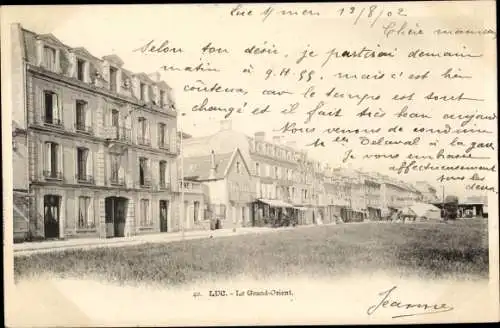 Luc s/ mer 13/8/02 Chère maman,
Selon ton désir, je partirai demain
matin à 9.H 55, mais c'est bien
contenue, car le temps est tout
changé et il fait très beau aujourd'hui
Nous venons de conduire
Mes Delaval à la gare
Je vous embrasse
affectueusement
40. LUC. - Le Grand-Orient.
Jeanne